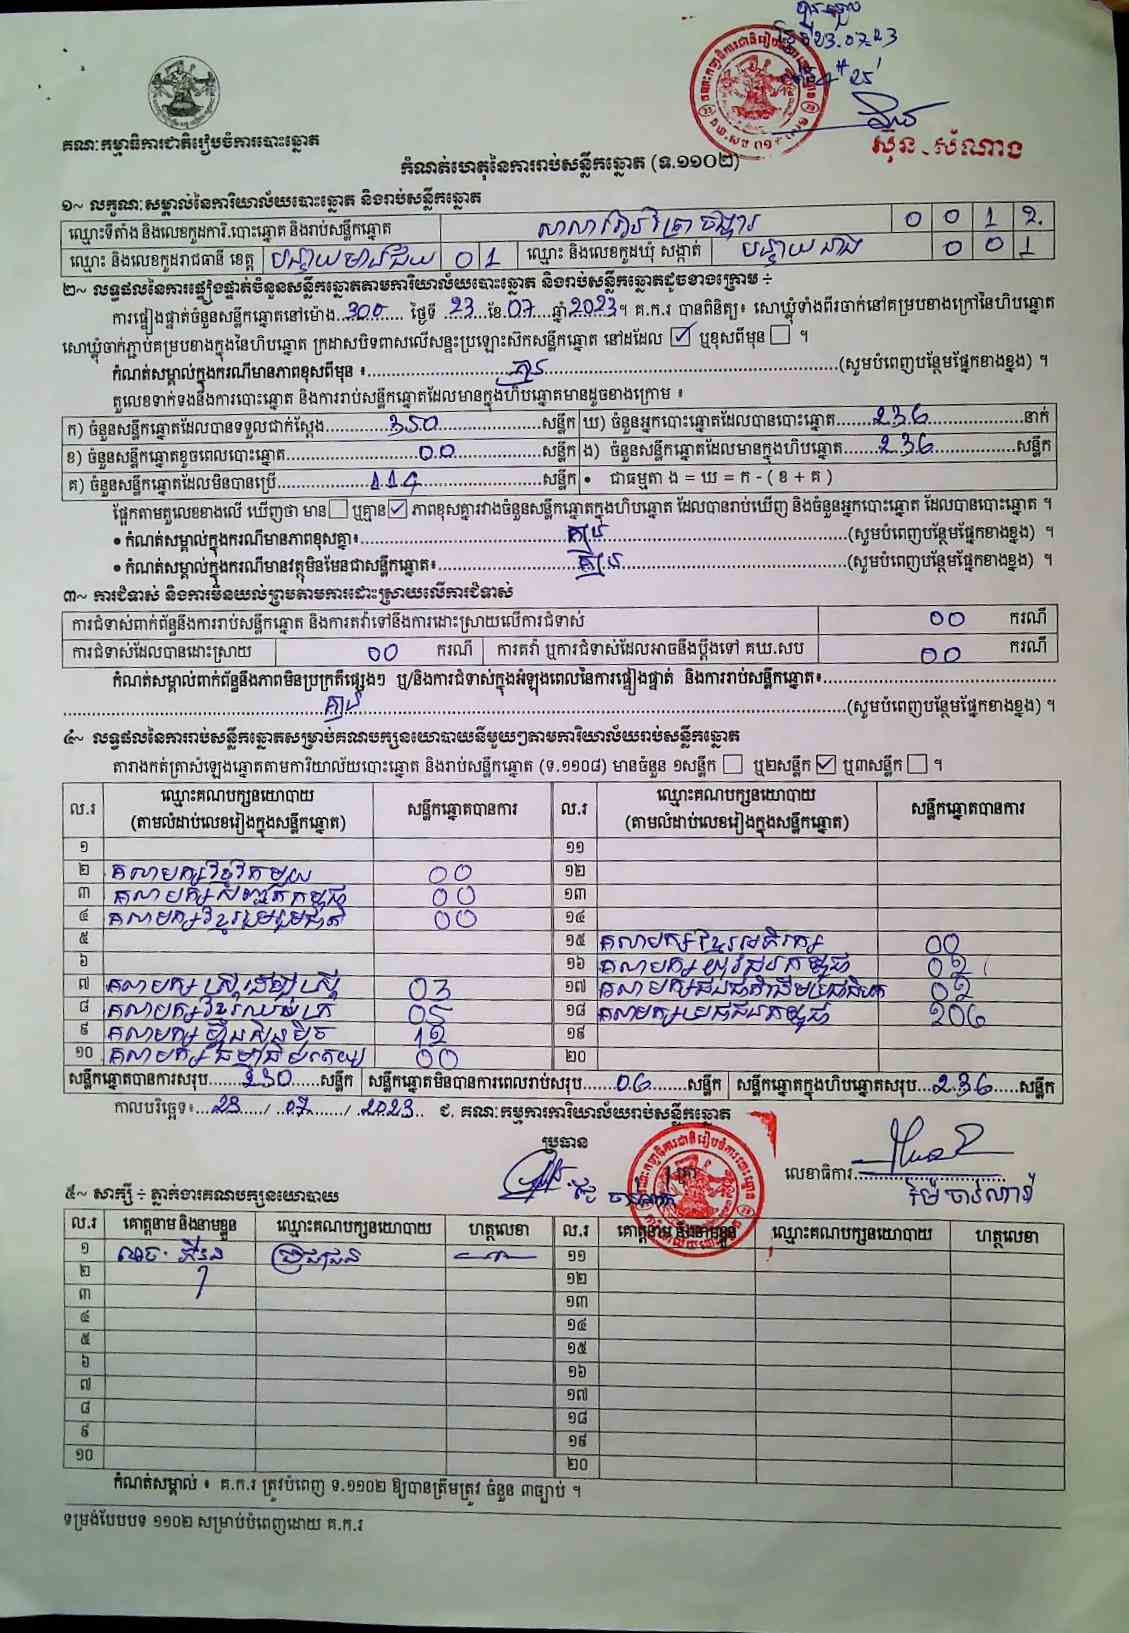 ថ្ងៃទី23.07.23
គណៈកម្មាធិការជាតិរៀបចំការបោះឆ្នោត
ស៊ុន សំណាង
កំណត់ហេតុនៃការរាប់សន្លឹកឆ្នោត (ទ.១១០២)
១~ លក្ខណៈសម្គាល់នៃការិយាល័យបោះឆ្នោត និងរាប់សន្លឹកឆ្នោត
ឈ្មោះទីតាំង និងលេខកូដការិ.បោះឆ្នោត និងរាប់សន្លឹកឆ្នោត 0 0 1 2
ឈ្មោះ និងលេខកូដរាជធានី ខេត្ត បន្ទាយមានជ័យ 0 1 ឈ្មោះ និងលេខកូដឃុំ សង្កាត់ បន្ទាយនាង 0 0 1
២~ លទ្ធផលនៃការផ្ទៀងផ្ទាត់ចំនួនសន្លឹកឆ្នោតតាមការិយាល័យបោះឆ្នោត និងរាប់សន្លឹកឆ្នោតដូចខាងក្រោម ៖
ការផ្ទៀងផ្ទាត់ចំនួនសន្លឹកឆ្នោតនៅម៉ោង 300 ថ្ងៃទី 23 ខែ 07 ឆ្នាំ 2023។ គ.ក.រ បានពិនិត្យ៖ សោឃ្លុំទាំងពីរចាក់នៅគម្របខាងក្រៅនៃហិបឆ្នោត
សោឃ្លុំចាក់ភ្ជាប់គម្របខាងក្នុងនៃហិបឆ្នោត ក្រដាសបិទពាសលើសន្ទះប្រឡោះស៊កសន្លឹកឆ្នោត នៅដដែល ☑ ឬខុសពីមុន ☐ ។
កំណត់សម្គាល់ក្នុងករណីមានភាពខុសពីមុន ៖ គ្មាន (សូមបំពេញបន្ថែមផ្នែកខាងខ្នង) ។
តួលេខទាក់ទងនឹងការបោះឆ្នោត និងការរាប់សន្លឹកឆ្នោតដែលមានក្នុងហិបឆ្នោតមានដូចខាងក្រោម ៖
ក) ចំនួនសន្លឹកឆ្នោតដែលបានទទួលជាក់ស្តែង 350 សន្លឹក ឃ) ចំនួនអ្នកបោះឆ្នោតដែលបានបោះឆ្នោត 236 នាក់
ខ) ចំនួនសន្លឹកឆ្នោតខូចពេលបោះឆ្នោត 00 សន្លឹក ង) ចំនួនសន្លឹកឆ្នោតដែលមានក្នុងហិបឆ្នោត 236 សន្លឹក
គ) ចំនួនសន្លឹកឆ្នោតដែលមិនបានប្រើ 114 សន្លឹក • ជាធម្មតា ង = ឃ = ក - ( ខ + គ )
ផ្អែកតាមតួលេខខាងលើ ឃើញថា មាន ☐ ឬគ្មាន ☑ ភាពខុសគ្នារវាងចំនួនសន្លឹកឆ្នោតក្នុងហិបឆ្នោត ដែលបានរាប់ឃើញ និងចំនួនអ្នកបោះឆ្នោត ដែលបានបោះឆ្នោត ។
• កំណត់សម្គាល់ក្នុងករណីមានភាពខុសគ្នា៖ គ្មាន (សូមបំពេញបន្ថែមផ្នែកខាងខ្នង) ។
• កំណត់សម្គាល់ក្នុងករណីមានវត្ថុមិនមែនជាសន្លឹកឆ្នោត៖ គ្មាន (សូមបំពេញបន្ថែមផ្នែកខាងខ្នង) ។
៣~ ការជំទាស់ និងការមិនយល់ព្រមតាមការដោះស្រាយលើការជំទាស់
ការជំទាស់ពាក់ព័ន្ធនឹងការរាប់សន្លឹកឆ្នោត និងការតវ៉ាទៅនឹងការដោះស្រាយលើការជំទាស់ 00 ករណី
ការជំទាស់ដែលបានដោះស្រាយ 00 ករណី ការតវ៉ា ឬការជំទាស់ដែលអាចនឹងប្តឹងទៅ គឃ.សប 00 ករណី
កំណត់សម្គាល់ពាក់ព័ន្ធនឹងភាពមិនប្រក្រតីផ្សេងៗ ឬ/និងការជំទាស់ក្នុងអំឡុងពេលនៃការផ្ទៀងផ្ទាត់ និងការរាប់សន្លឹកឆ្នោត៖
គ្មាន (សូមបំពេញបន្ថែមផ្នែកខាងខ្នង) ។
៤~ លទ្ធផលនៃការរាប់សន្លឹកឆ្នោតសម្រាប់គណបក្សនយោបាយនីមួយៗតាមការិយាល័យរាប់សន្លឹកឆ្នោត
តារាងកត់ត្រាសំឡេងឆ្នោតតាមការិយាល័យបោះឆ្នោត និងរាប់សន្លឹកឆ្នោត (ទ.១១០៨) មានចំនួន ១សន្លឹក ☐ ឬ២សន្លឹក ☑ ឬ៣សន្លឹក ☐ ។
ល.រ ឈ្មោះគណបក្សនយោបាយ (តាមលំដាប់លេខរៀងក្នុងសន្លឹកឆ្នោត) សន្លឹកឆ្នោតបានការ ល.រ ឈ្មោះគណបក្សនយោបាយ (តាមលំដាប់លេខរៀងក្នុងសន្លឹកឆ្នោត) សន្លឹកឆ្នោតបានការ
១ ១១
២ គណបក្សខ្មែរតែមួយ 00 ១២
៣ គណបក្សសញ្ជាតិកម្ពុជា 00 ១៣
៤ គណបក្សខ្មែររួបរួមជាតិ 00 ១៤
៥ ១៥ គណបក្សខ្មែរអភិរក្ស 00
៦ ១៦ គណបក្សយុវជនកម្ពុជា 02
៧ គណបក្សស្ត្រីដើម្បីស្ត្រី 03 ១៧ 02
៨ គណបក្ស 05 ១៨ គណបក្សប្រជាជនកម្ពុជា 206
៩ គណបក្សហ្វ៊ុនស៊ិនប៉ិច 12 ១៩
១០ គណបក្សធម្មាធិបតេយ្យ 00 ២០
សន្លឹកឆ្នោតបានការសរុប 230 សន្លឹក សន្លឹកឆ្នោតមិនបានការពេលរាប់សរុប 06 សន្លឹក សន្លឹកឆ្នោតក្នុងហិបឆ្នោតសរុប 236 សន្លឹក
កាលបរិច្ឆេទ៖ 23 / 07 / 2023 ជ. គណៈកម្មការការិយាល័យរាប់សន្លឹកឆ្នោត
ប្រធាន
លេខាធិការ
៥~ សាក្សី ÷ ភ្នាក់ងារគណបក្សនយោបាយ
ល.រ គោត្តនាម និងនាមខ្លួន ឈ្មោះគណបក្សនយោបាយ ហត្ថលេខា ល.រ គោត្តនាម និងនាមខ្លួន ឈ្មោះគណបក្សនយោបាយ ហត្ថលេខា
១ ប្រជាជន ១១
២ ១២
៣ ១៣
៤ ១៤
៥ ១៥
៦ ១៦
៧ ១៧
៨ ១៨
៩ ១៩
១០ ២០
កំណត់សម្គាល់ ៖ គ.ក.រ ត្រូវបំពេញ ទ.១១០២ ឱ្យបានត្រឹមត្រូវ ចំនួន ៣ច្បាប់ ។
ទម្រង់បែបបទ ១១០២ សម្រាប់បំពេញដោយ គ.ក.រ